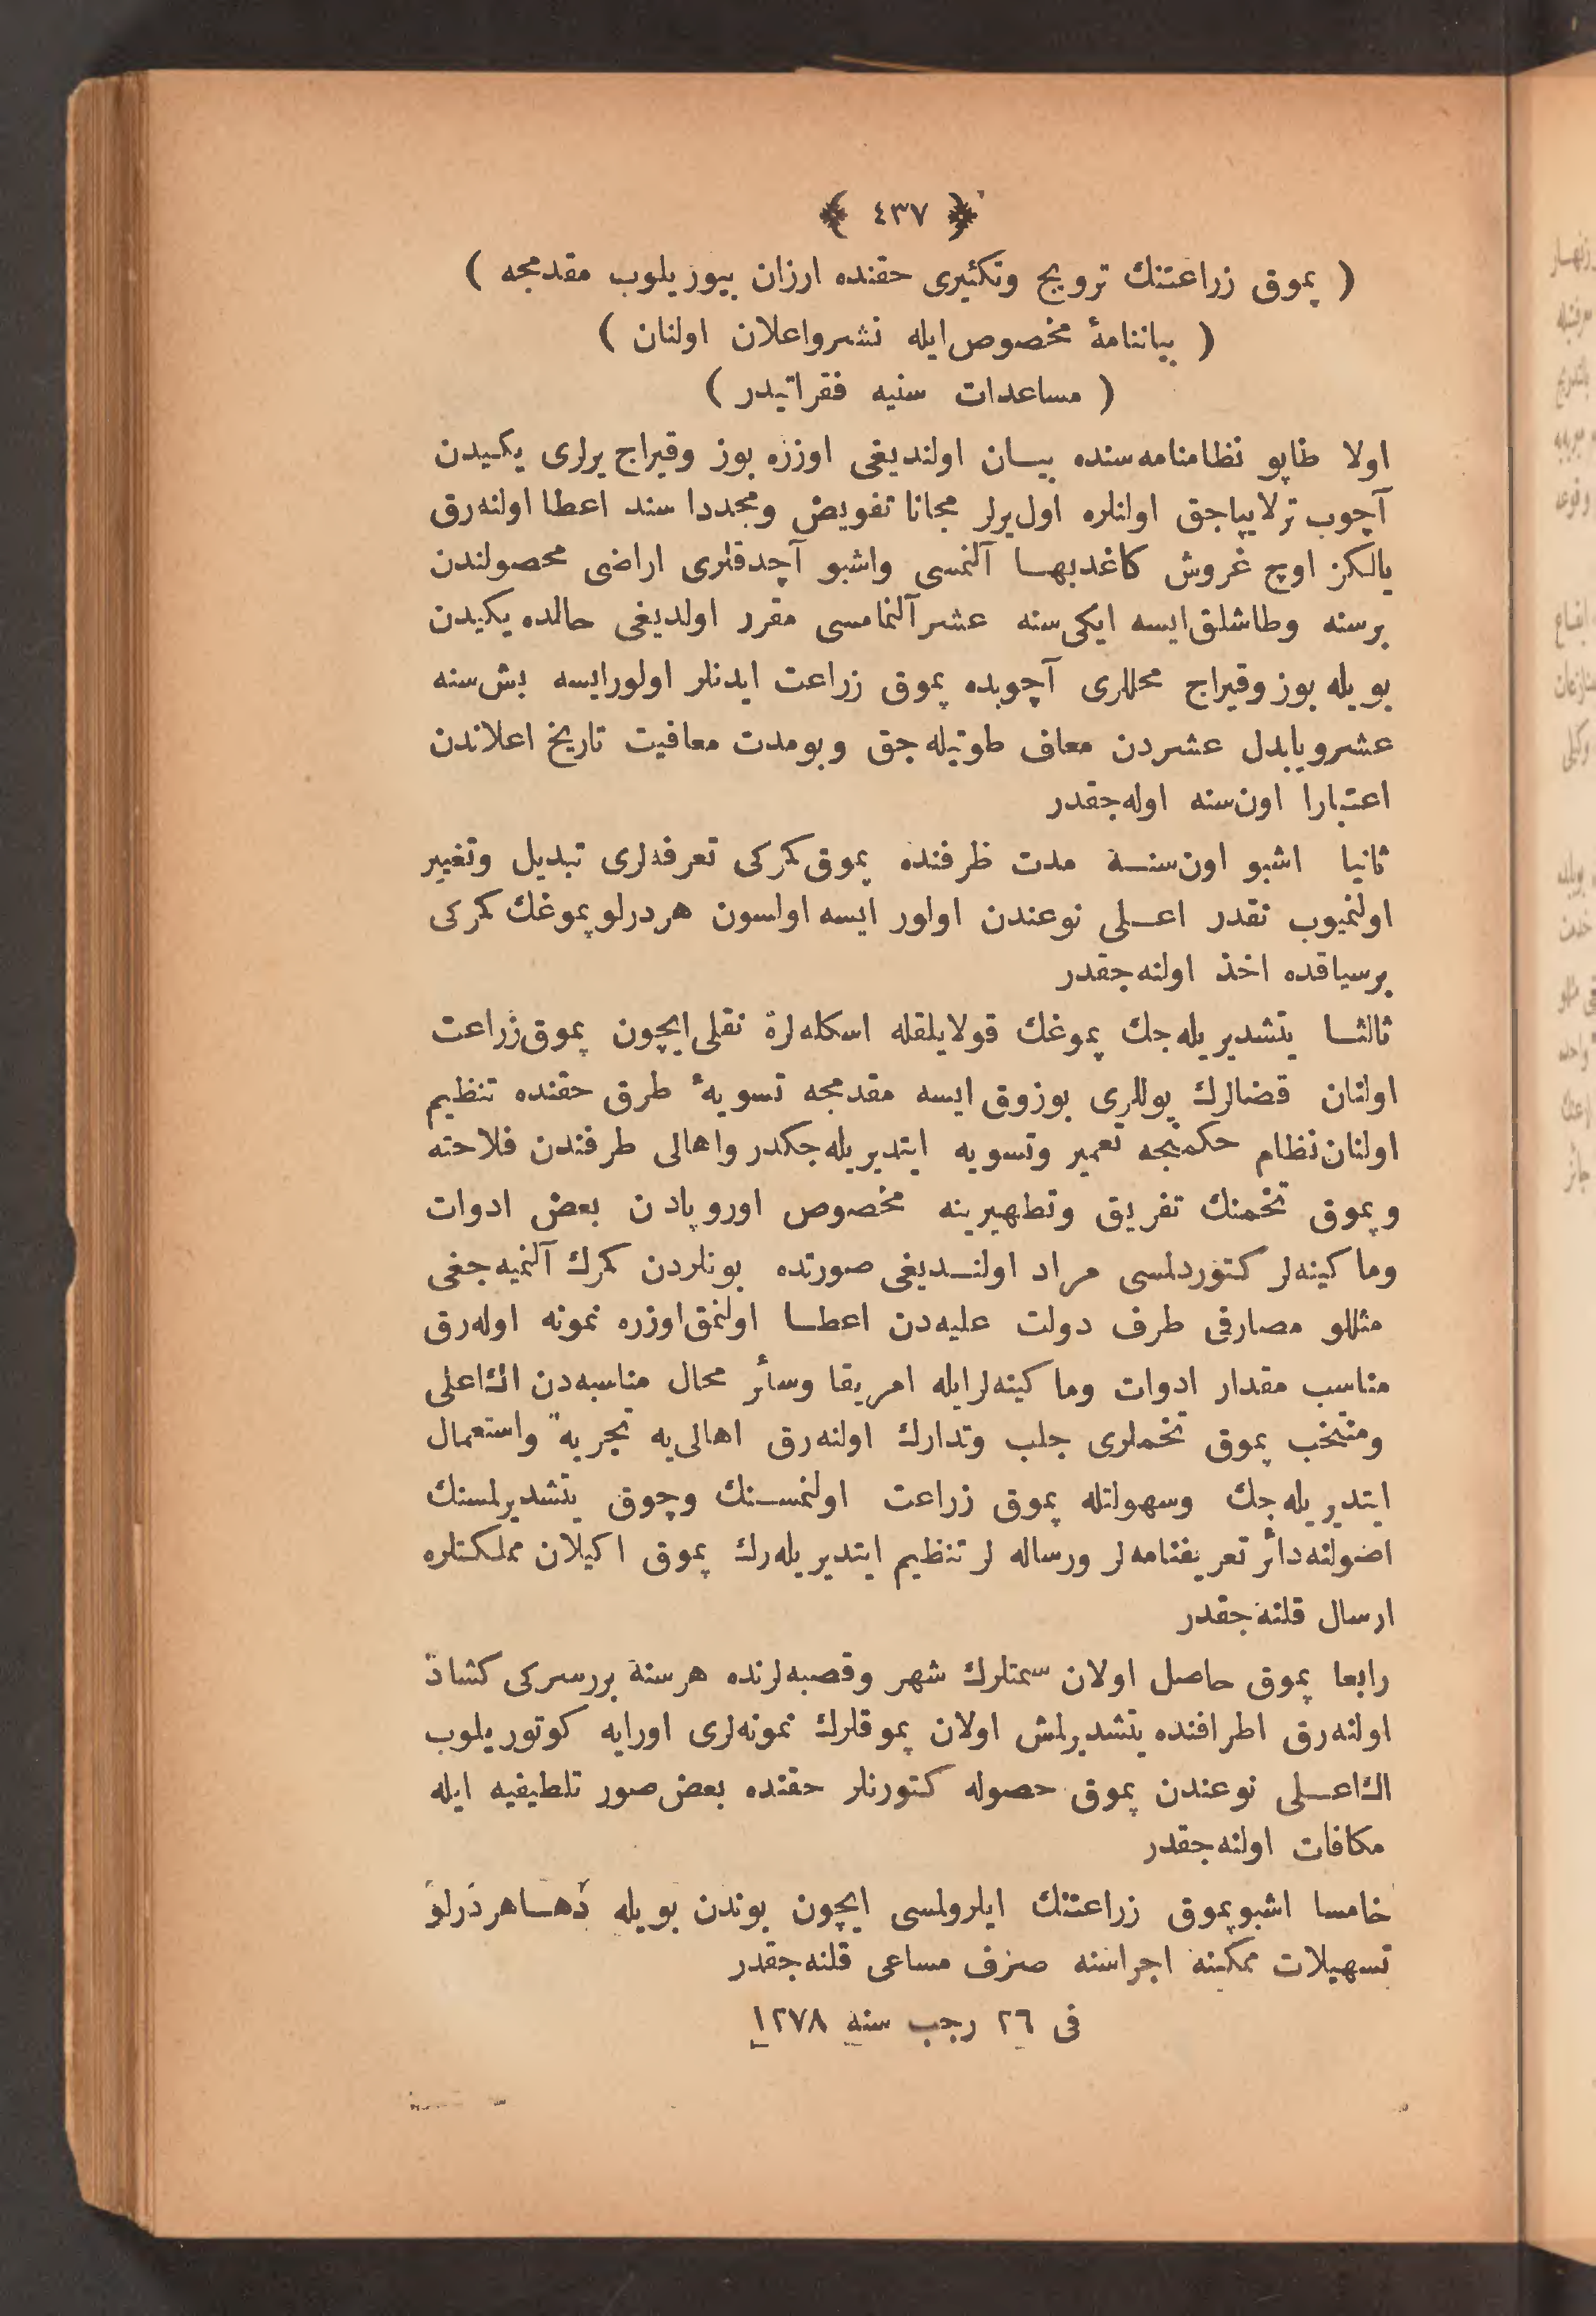 ﴿ ٤٣٧ ﴾
( پموق زراعتنك ترويج وتكثيرى حقنده ارزان بيوريلوب مقدمجه )
( بياننامهٔ مخصوص ايله نشر واعلان اولنان )
( مساعدات سنيه فقراتيدر )
اولا طاپو نظامنامه‌سنده بيــان اولنديغى اوزره بوز وقيراج يرلرى يكيدن
آچوب ترلا ياپاجق اولنلره اول يرلر مجانا تفويض ومجددا سند اعطا اولنه‌رق
يالكز اوچ غروش كاغد بهــا آلنمسى واشبو آچدقلرى اراضى محصولندن
برسنه وطاشلق ايسه ايكى سنه عشر آلنمامسى مقرر اولديغى حالده يكيدن
بويله بوز وقيراج محللرى آچوبده پموق زراعت ايدنلر اولور ايسه بش سنه
عشر ويا بدل عشردن معاف طوتيله‌جق وبو مدت معافيت تاريخ اعلاندن
اعتبارا اون سنه اوله‌جقدر
ثانيا اشبو اون سنــه مدت ظرفنده پموق كمركى تعرفه‌لرى تبديل وتغيير
اولنميوب نقدر اعــلى نوعندن اولور ايسه اولسون هر درلو پموغك كمركى
برسياقده اخذ اولنه‌جقدر
ثالثــا يتشديريله‌جك پموغك قولايلقله اسكله‌لره نقلى ايچون پموق زراعت
اولنان قضالرك يوللرى بوزوق ايسه مقدمجه تسويهٔ طرق حقنده تنظيم
اولنان نظام حكمنجه تعمير وتسويه ايتديريله‌جكدر واهالى طرفندن فلاحته
وپموق تخمنك تفريق وتطهيرينه مخصوص اوروپادن بعض ادوات
وماكينه‌لر كتوردلمسى مراد اولنــديغى صورتده بونلردن كمرك آلنميه‌جغى
مثللو مصارفى طرف دولت عليه‌دن اعطــا اولنمق اوزره نمونه اوله‌رق
مناسب مقدار ادوات وماكينه‌لر ايله امريقا وسائر محال مناسبه‌دن اك اعلى
ومنتخب پموق تخملرى جلب وتدارك اولنه‌رق اهالى‌يه تجربه واستعمال
ايتديريله‌جك وسهولتله پموق زراعت اولنمســنك وچوق يتشديرلمسنك
اصولنه دائر تعريفنامه‌لر ورساله‌لر تنظيم ايتديريله‌رك پموق اكيلان مملكتلره
ارسال قلنه‌جقدر
رابعا پموق حاصل اولان سمتلرك شهر وقصبه‌لرنده هر سنه بررسركى كشاد
اولنه‌رق اطرافنده يتشديرلمش اولان پموقلرك نمونه‌لرى اورايه كوتوريلوب
اك اعــلى نوعندن پموق حصوله كتورنلر حقنده بعض صور تلطيفيه ايله
مكافات اولنه‌جقدر
خامسا اشبو پموق زراعتنك ايلرولمسى ايچون بوندن بويله دهــا هر درلو
تسهيلات ممكنه اجراسنه صرف مساعى قلنه‌جقدر
فى ٢٦ رجب سنه ١٢٧٨